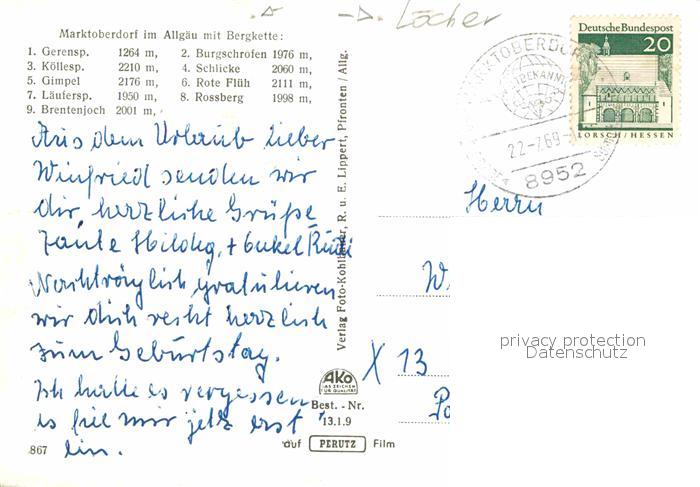 Löcher
Marktoberdorf im Allgäu mit Bergkette:
1. Gerensp. 1264 m, 2. Burgschrofen 1976 m,
3. Köllesp. 2210 m, 4. Schlicke 2060 m,
5. Gimpel 2176 m, 6. Rote Flüh 2111 m,
7. Läufersp. 1950 m, 8. Rossberg 1998 m,
9. Brentenjoch 2001 m,
Aus dem Urlaub lieber
Winfried senden wir
dir herzliche Grüße
Tante Hildeg. + Onkel Rudi
Nachträglich gratulieren
wir dich recht herzlich
zum Geburtstag.
Ich hatte es vergessen
es fiel mir jetz erst
ein.
867
Verlag Foto-Kohlbauer, R. u. E. Lippert, Pfronten / Allg.
AKo
DAS ZEICHEN FÜR QUALITÄT
Best. - Nr.
13.1.9
auf PERUTZ Film
Deutsche Bundespost
20
LORSCH/HESSEN
MARKTOBERDORF
22-7.69
8952
Herrn
W
X 13
privacy protection
Datenschutz